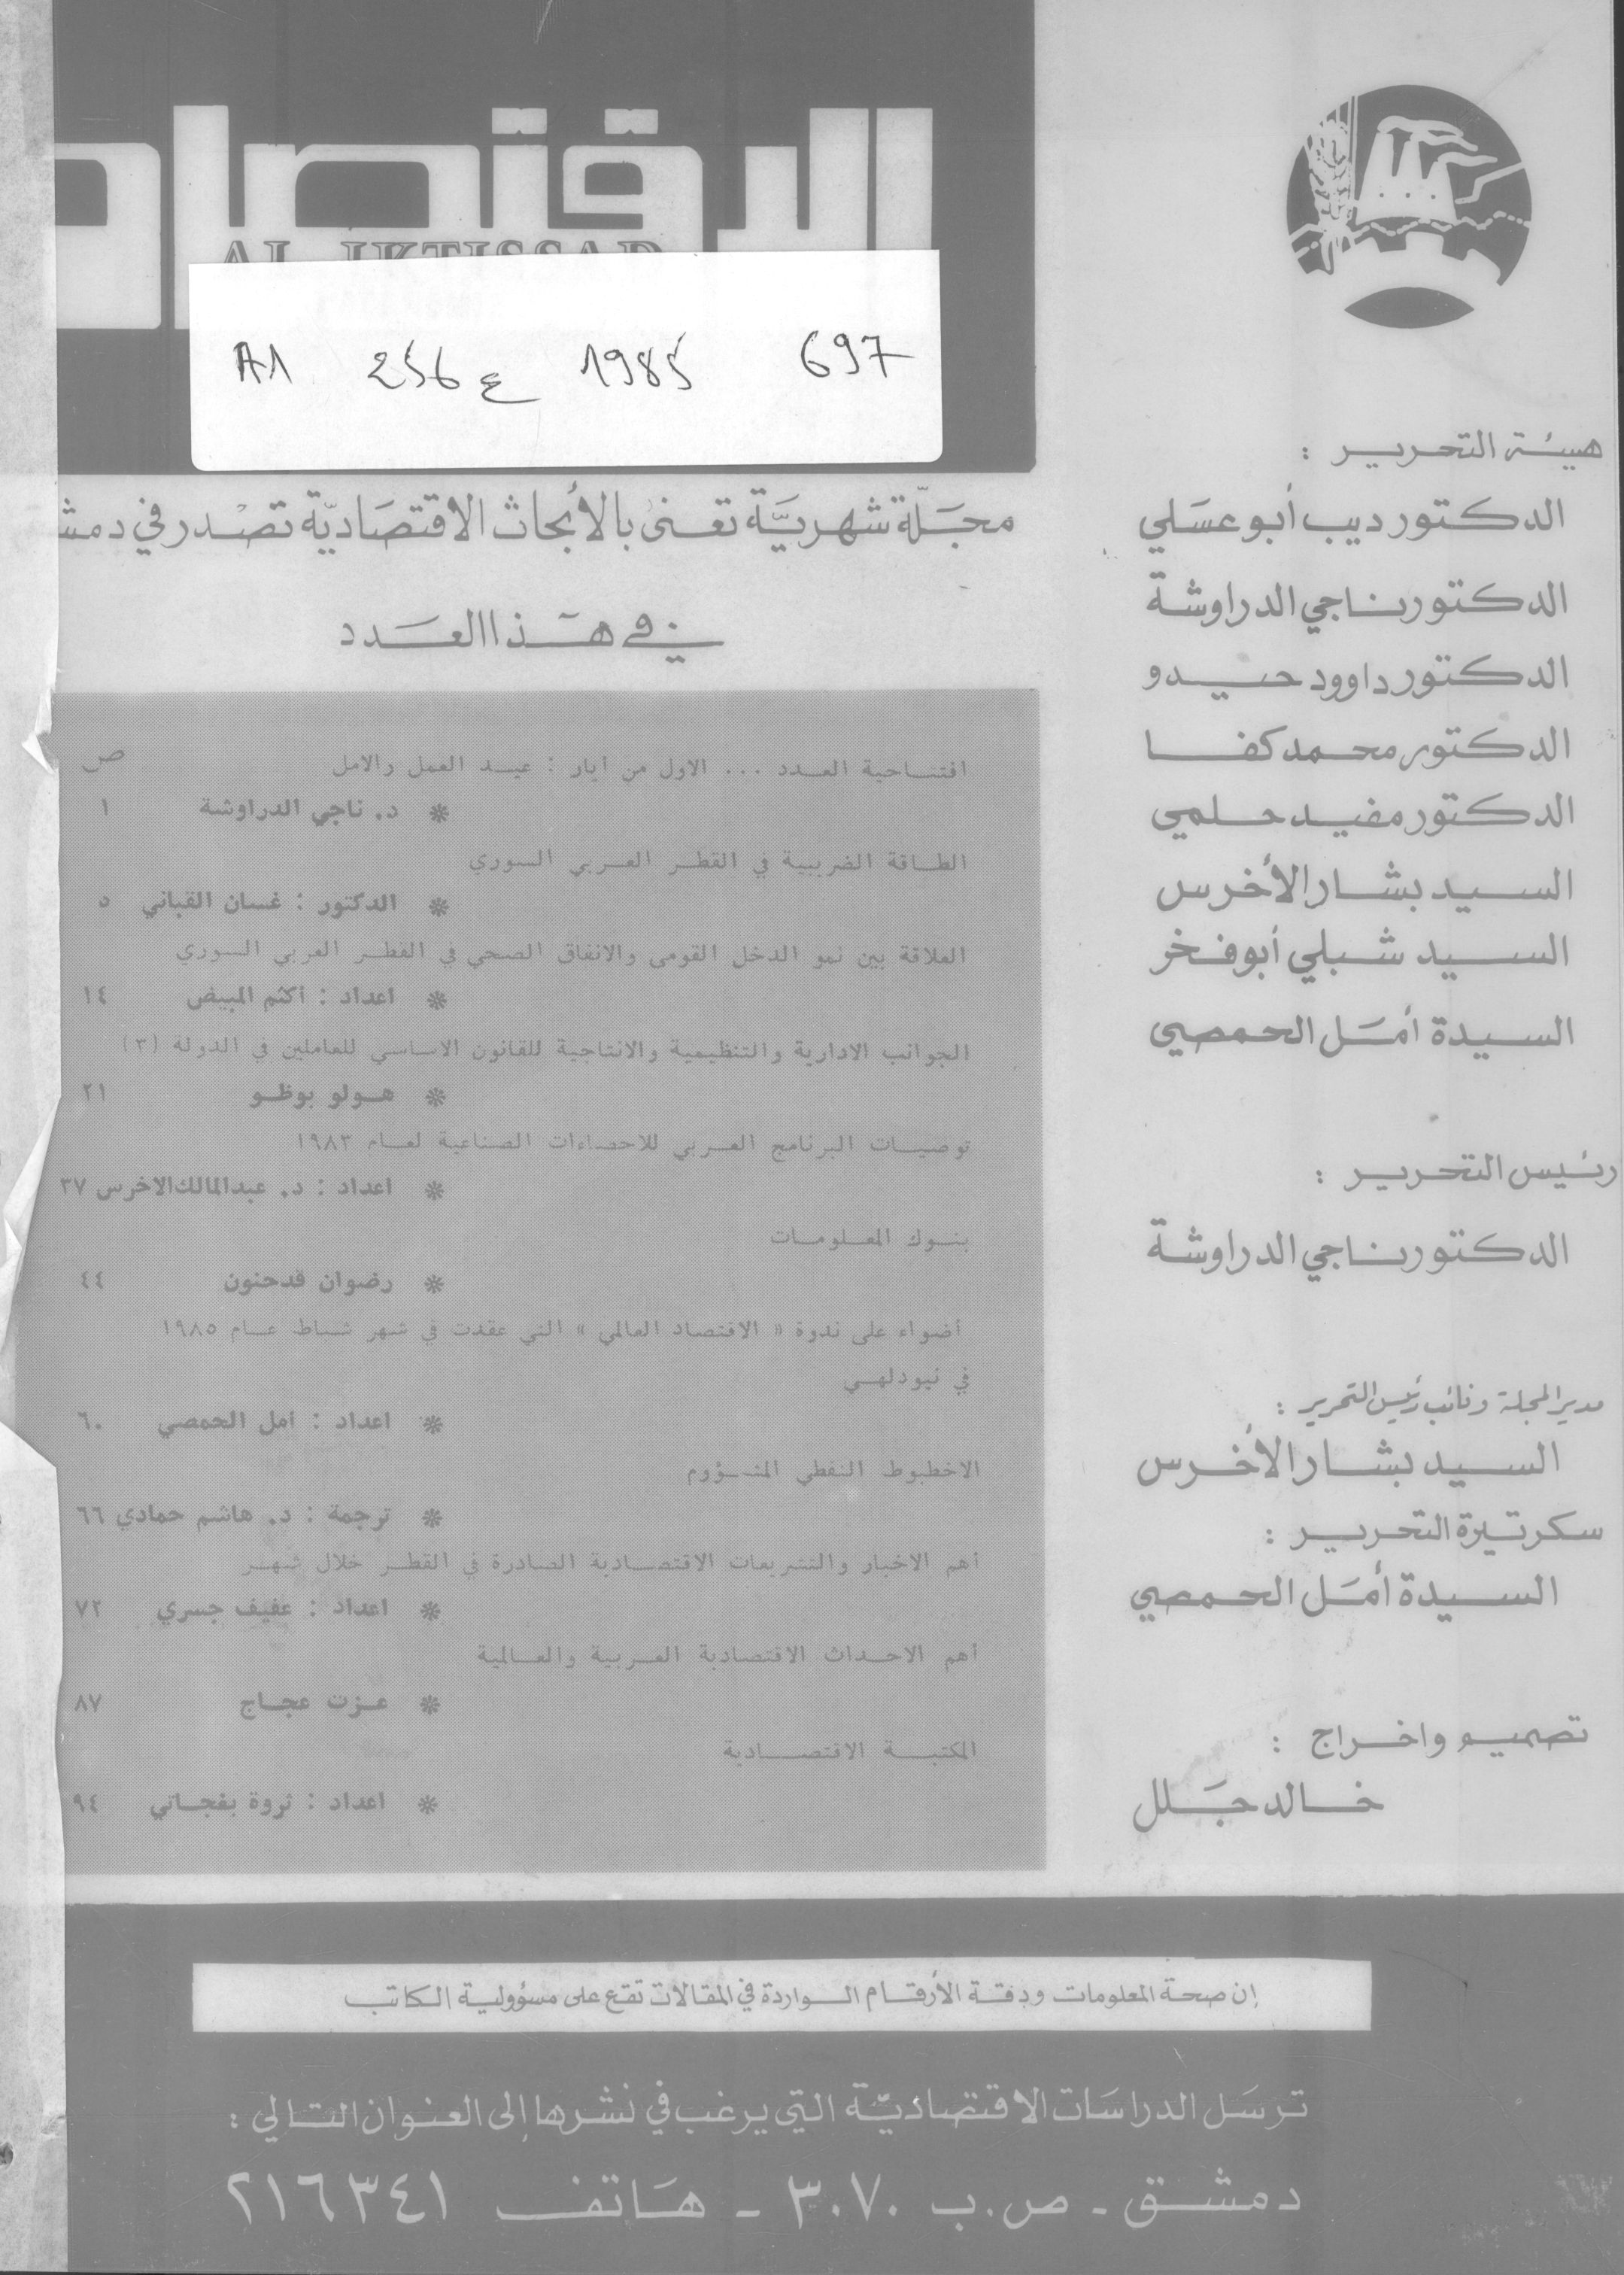 الاقتصاد
AL IKTISSAD
A1 256 ع 1985 697
مجلة شهرية تعنى بالأبحاث الاقتصادية تصدر في دمش
في هذا العدد
ص
افتتاحية العدد ... الاول من ايار : عيد العمل والامل
* د. ناجي الدراوشة ١
الطاقة الضريبية في القطر العربي السوري
* الدكتور : غسان القباني ٥
العلاقة بين نمو الدخل القومي والانفاق الصحي في القطر العربي السوري
* اعداد : اكثم المبيض ١٤
الجوانب الادارية والتنظيمية والانتاجية للقانون الاساسي للعاملين في الدولة (٣)
* هولو بوظو ٢١
توصيات البرنامج العربي للاحصاءات الصناعية لعام ١٩٨٣
* اعداد : د. عبدالمالك الاخرس ٣٧
بنوك المعلومات
* رضوان قدحنون ٤٤
أضواء على ندوة « الاقتصاد العالمي » التي عقدت في شهر شباط عام ١٩٨٥
في نيودلهي
* اعداد : امل الحمصي ٦٠
الاخطبوط النفطي المشؤوم
* ترجمة : د. هاشم حمادي ٦٦
أهم الاخبار والتشريعات الاقتصادية الصادرة في القطر خلال شهر
* اعداد : عفيف جسري ٧٢
أهم الاحداث الاقتصادية العربية والعالمية
* عزت عجاج ٨٧
المكتبة الاقتصادية
* اعداد : ثروة بغجاتي ٩٤
هيئة التحرير :
الدكتور ديب أبو عسلي
الدكتور ناجي الدراوشة
الدكتور داوود حيدو
الدكتور محمد كفا
الدكتور مفيد حلمي
السيد بشار الأخرس
السيد شبلي أبو فخر
السيدة أمل الحمصي
رئيس التحرير :
الدكتور ناجي الدراوشة
مدير المجلة ونائب رئيس التحرير :
السيد بشار الأخرس
سكرتيرة التحرير :
السيدة أمل الحمصي
تصميم واخراج :
خالد جلل
إن صحة المعلومات ودقة الأرقام الواردة في المقالات تقع على مسؤولية الكاتب
ترسل الدراسات الاقتصادية التي يرغب في نشرها إلى العنوان التالي :
دمشق - ص.ب ٣٠٧٠ - هاتف ٢١٦٣٤١